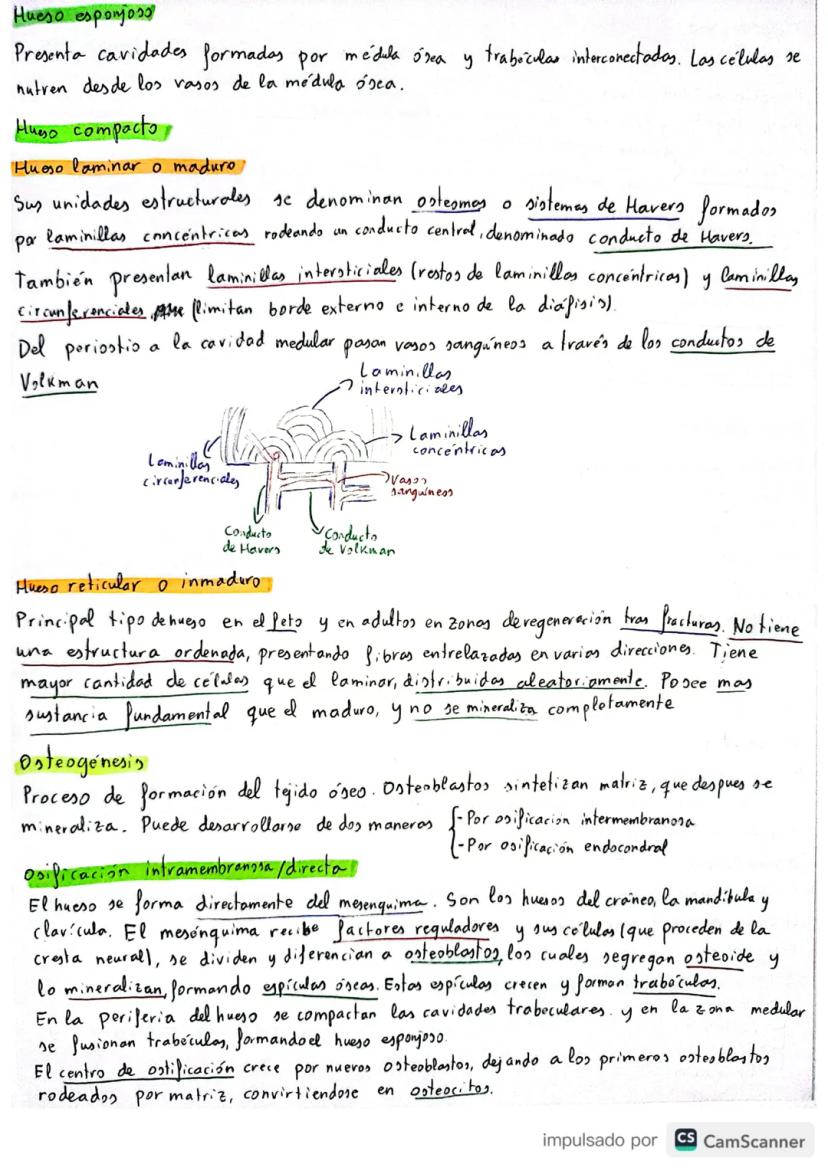 Hueso esponjoso
Presenta cavidades formadas por médula ósea y trabéculas interconectadas. Las células se
nutren desde los vasos de la médula ósea.
Hueso compacto
Hueso laminar o maduro
Sus unidades estructurales se denominan osteomas o sistemas de Havers formados
por laminillas concéntricas rodeando un conducto central, denominado conducto de Havers.
También presentan laminillas intersticiales (restos de laminillas concéntricas) y laminillas
circunferenciales (limitan borde externo e interno de la diáfisis).
Del periostio a la cavidad medular pasan vasos sanguíneos a través de los conductos de
Volkman
Laminillas
intersticiales
Laminillas
concéntricas
Laminillas
circunferenciales
Vasos
sanguíneos
Conducto
de Havers
Conducto
de Volkman
Hueso reticular o inmaduro
Principal tipo de hueso en el feto y en adultos en zonas de regeneración tras fracturas. No tiene
una estructura ordenada, presentando fibras entrelazadas en varias direcciones. Tiene
mayor cantidad de células que el laminar, distribuidas aleatoriamente. Posee mas
sustancia fundamental que el maduro, y no se mineraliza completamente
Osteogénesis
Proceso de formación del tejido óseo. Osteoblastos sintetizan matriz, que despues se
mineraliza. Puede desarrollarse de dos maneras
-Por osificación intermembranosa
-Por osificación endocondral
Osificación intramembranosa/directa
El hueso se forma directamente del mesenquima. Son los huesos del cráneo, la mandíbula y
clavícula. El mesénquima recibe factores reguladores y sus células (que proceden de la
cresta neural), se dividen y diferencian a osteoblastos, los cuales segregan osteoide y
lo mineralizan, formando espículas óseas. Estas espículas crecen y forman trabéculas.
En la periferia del hueso se compactan las cavidades trabeculares. y en la zona medular
se fusionan trabéculas, formando el hueso esponjoso.
El centro de ostificación crece por nuevos osteoblastos, dejando a los primeros osteoblastos
rodeados por matriz, convirtiendose en osteocitos.
impulsado por CS CamScanner